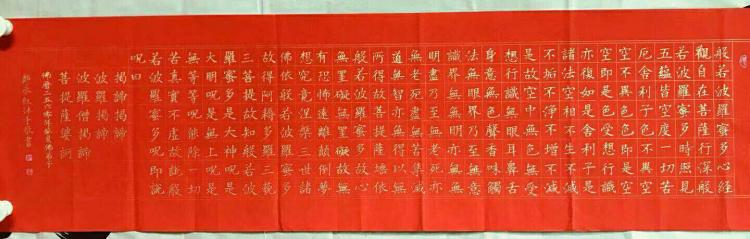 般若波羅蜜多心經
觀自在菩薩行深般
若波羅蜜多時照見
五蘊皆空度一切苦
厄舍利子色不異空
空不異色色即是空
空即是色受想行識
亦復如是舍利子是
諸法空相不生不滅
不垢不淨不增不減
是故空中無色無受
想行識無眼耳鼻舌
身意無色聲香味觸
法無眼界乃至無意
識界無無明亦無無
明盡乃至無老死亦
無老死盡無苦集滅
道無智亦無得以無
所得故菩提薩埵依
般若波羅蜜多故心
無罣礙無罣礙故無
有恐怖遠離顛倒夢
想究竟涅槃三世諸
佛依般若波羅蜜多
故得阿耨多羅三藐
三菩提故知般若波
羅蜜多是大神呪是
大明呪是無上呪是
無等等呪能除一切
苦真實不虛故說般
若波羅蜜多呪即說
呪曰
揭諦揭諦
波羅揭諦
波羅僧揭諦
菩提薩婆訶
佛曆二五六年佛弟子